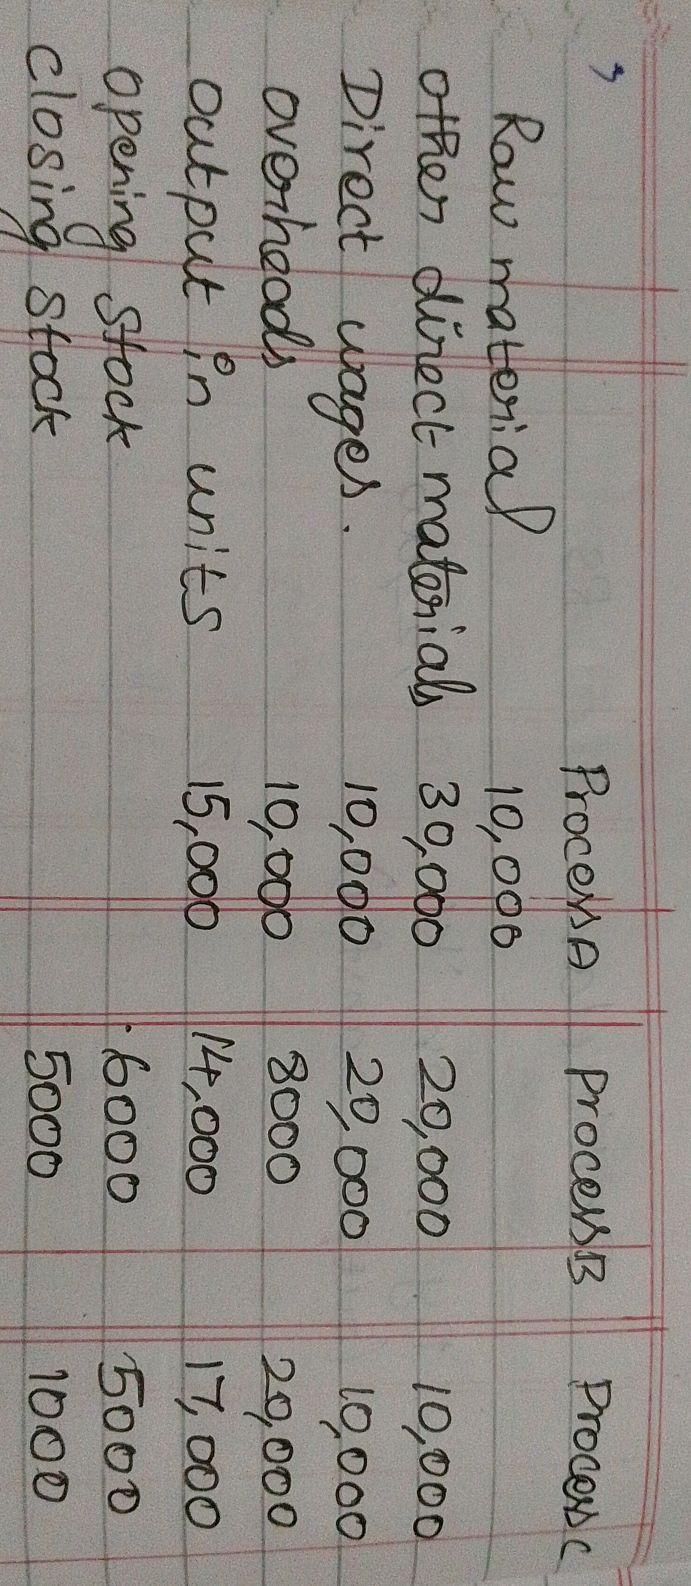 Process A Process B Process C
Raw material 10,000
other direct materials 30,000 20,000 10,000
Direct wages. 10,000 20,000 10,000
overheads 10,000 8000 20,000
output in units 15,000 14,000 17,000
opening stock 6000 5000
closing stock 5000 1000